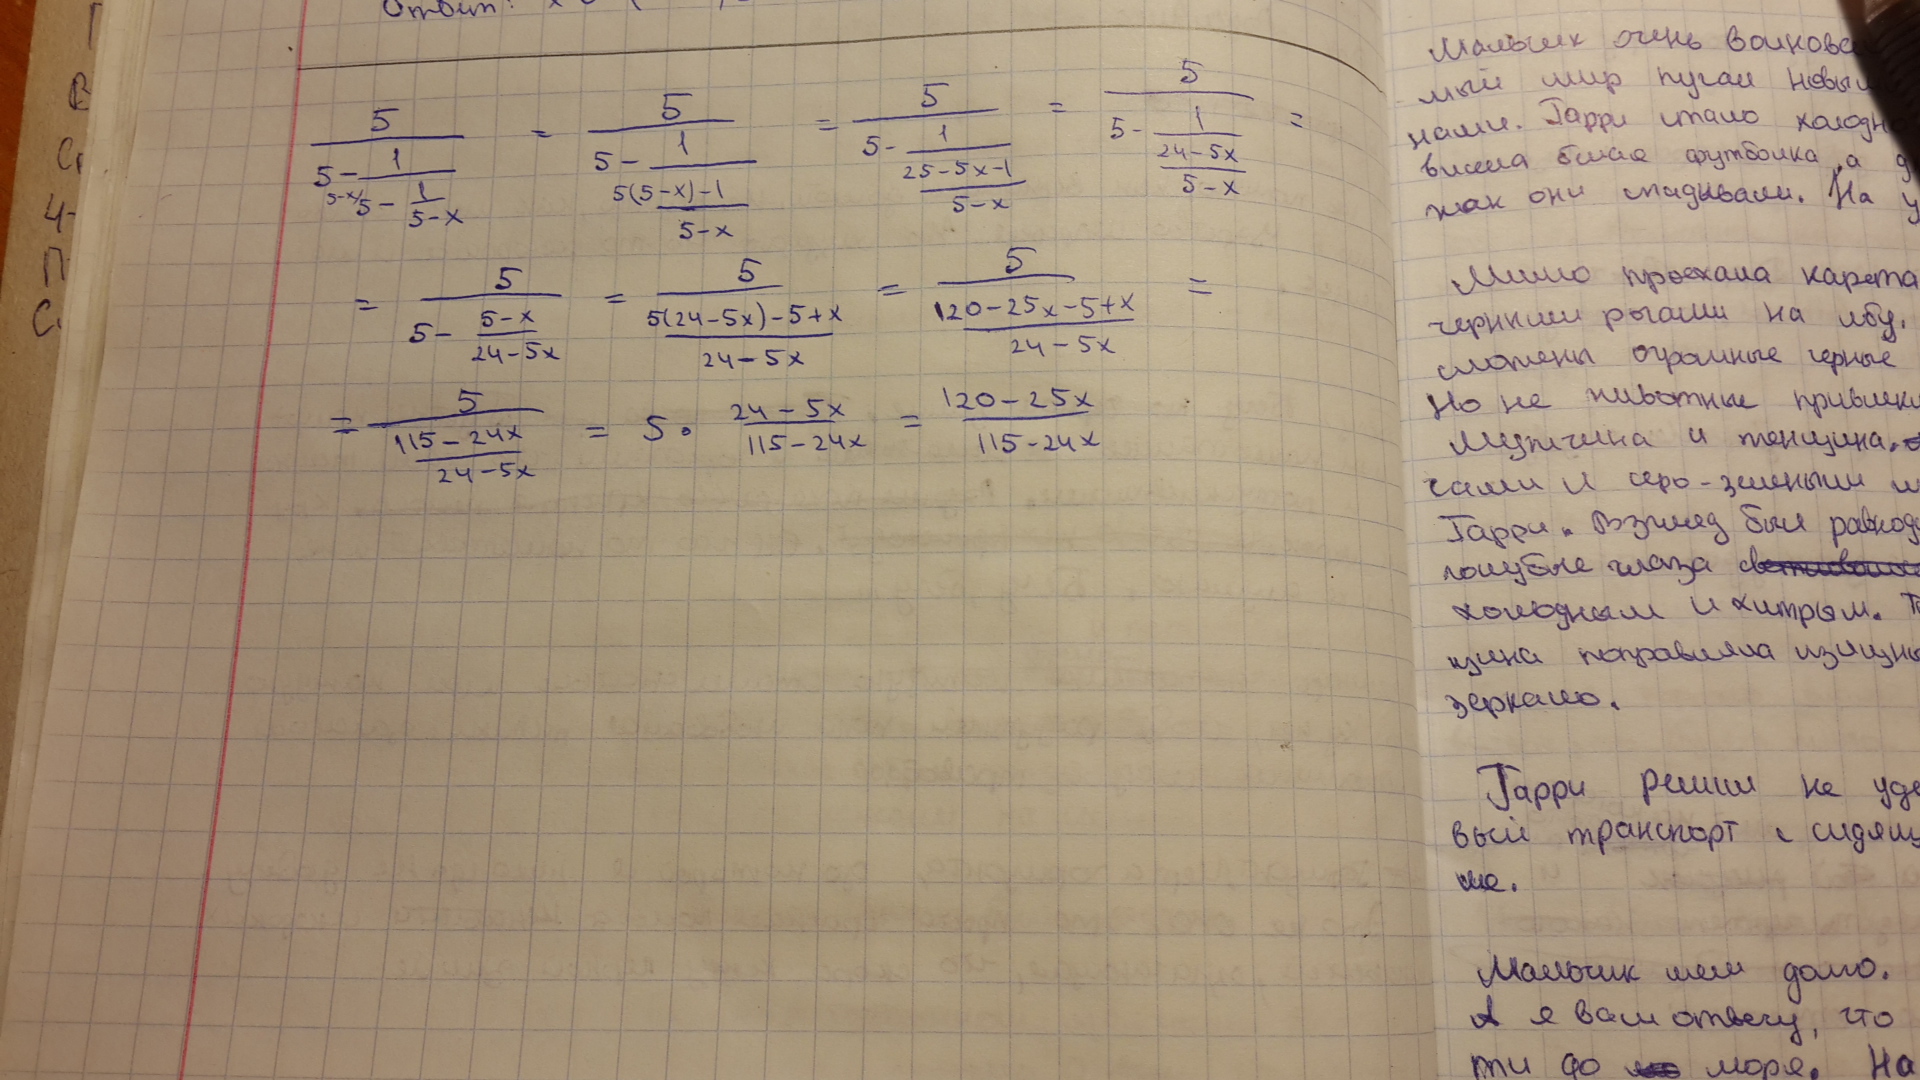 Ответ: x
5/(5-1/(5-1/(5-x))) = 5/(5-1/((5(5-x)-1)/(5-x))) = 5/(5-1/((25-5x-1)/(5-x))) = 5/(5-1/((24-5x)/(5-x))) =
= 5/(5-(5-x)/(24-5x)) = 5/((5(24-5x)-5+x)/(24-5x)) = 5/((120-25x-5+x)/(24-5x)) =
= 5/((115-24x)/(24-5x)) = 5 · (24-5x)/(115-24x) = (120-25x)/(115-24x)
Мальчик очень волнова
мый мир пугал новым
нами. Гарри стало холодн
висела белая футболка, а д
как они спадывали. На у
Мимо проехала карета
черными рогами на лбу.
сложены огромные черные
Но не животные привлекл
Мужчина и женщина.
чами и серо-зелеными
Гарри. Взгляд был равнод
голубые глаза
холодным и хитрым.
щина поправляла изящны
зеркало.
Гарри решил не уде
вый транспорт с сидящ
же.
Мальчик шел долго.
А я вам отвечу, что
ти до моря. На